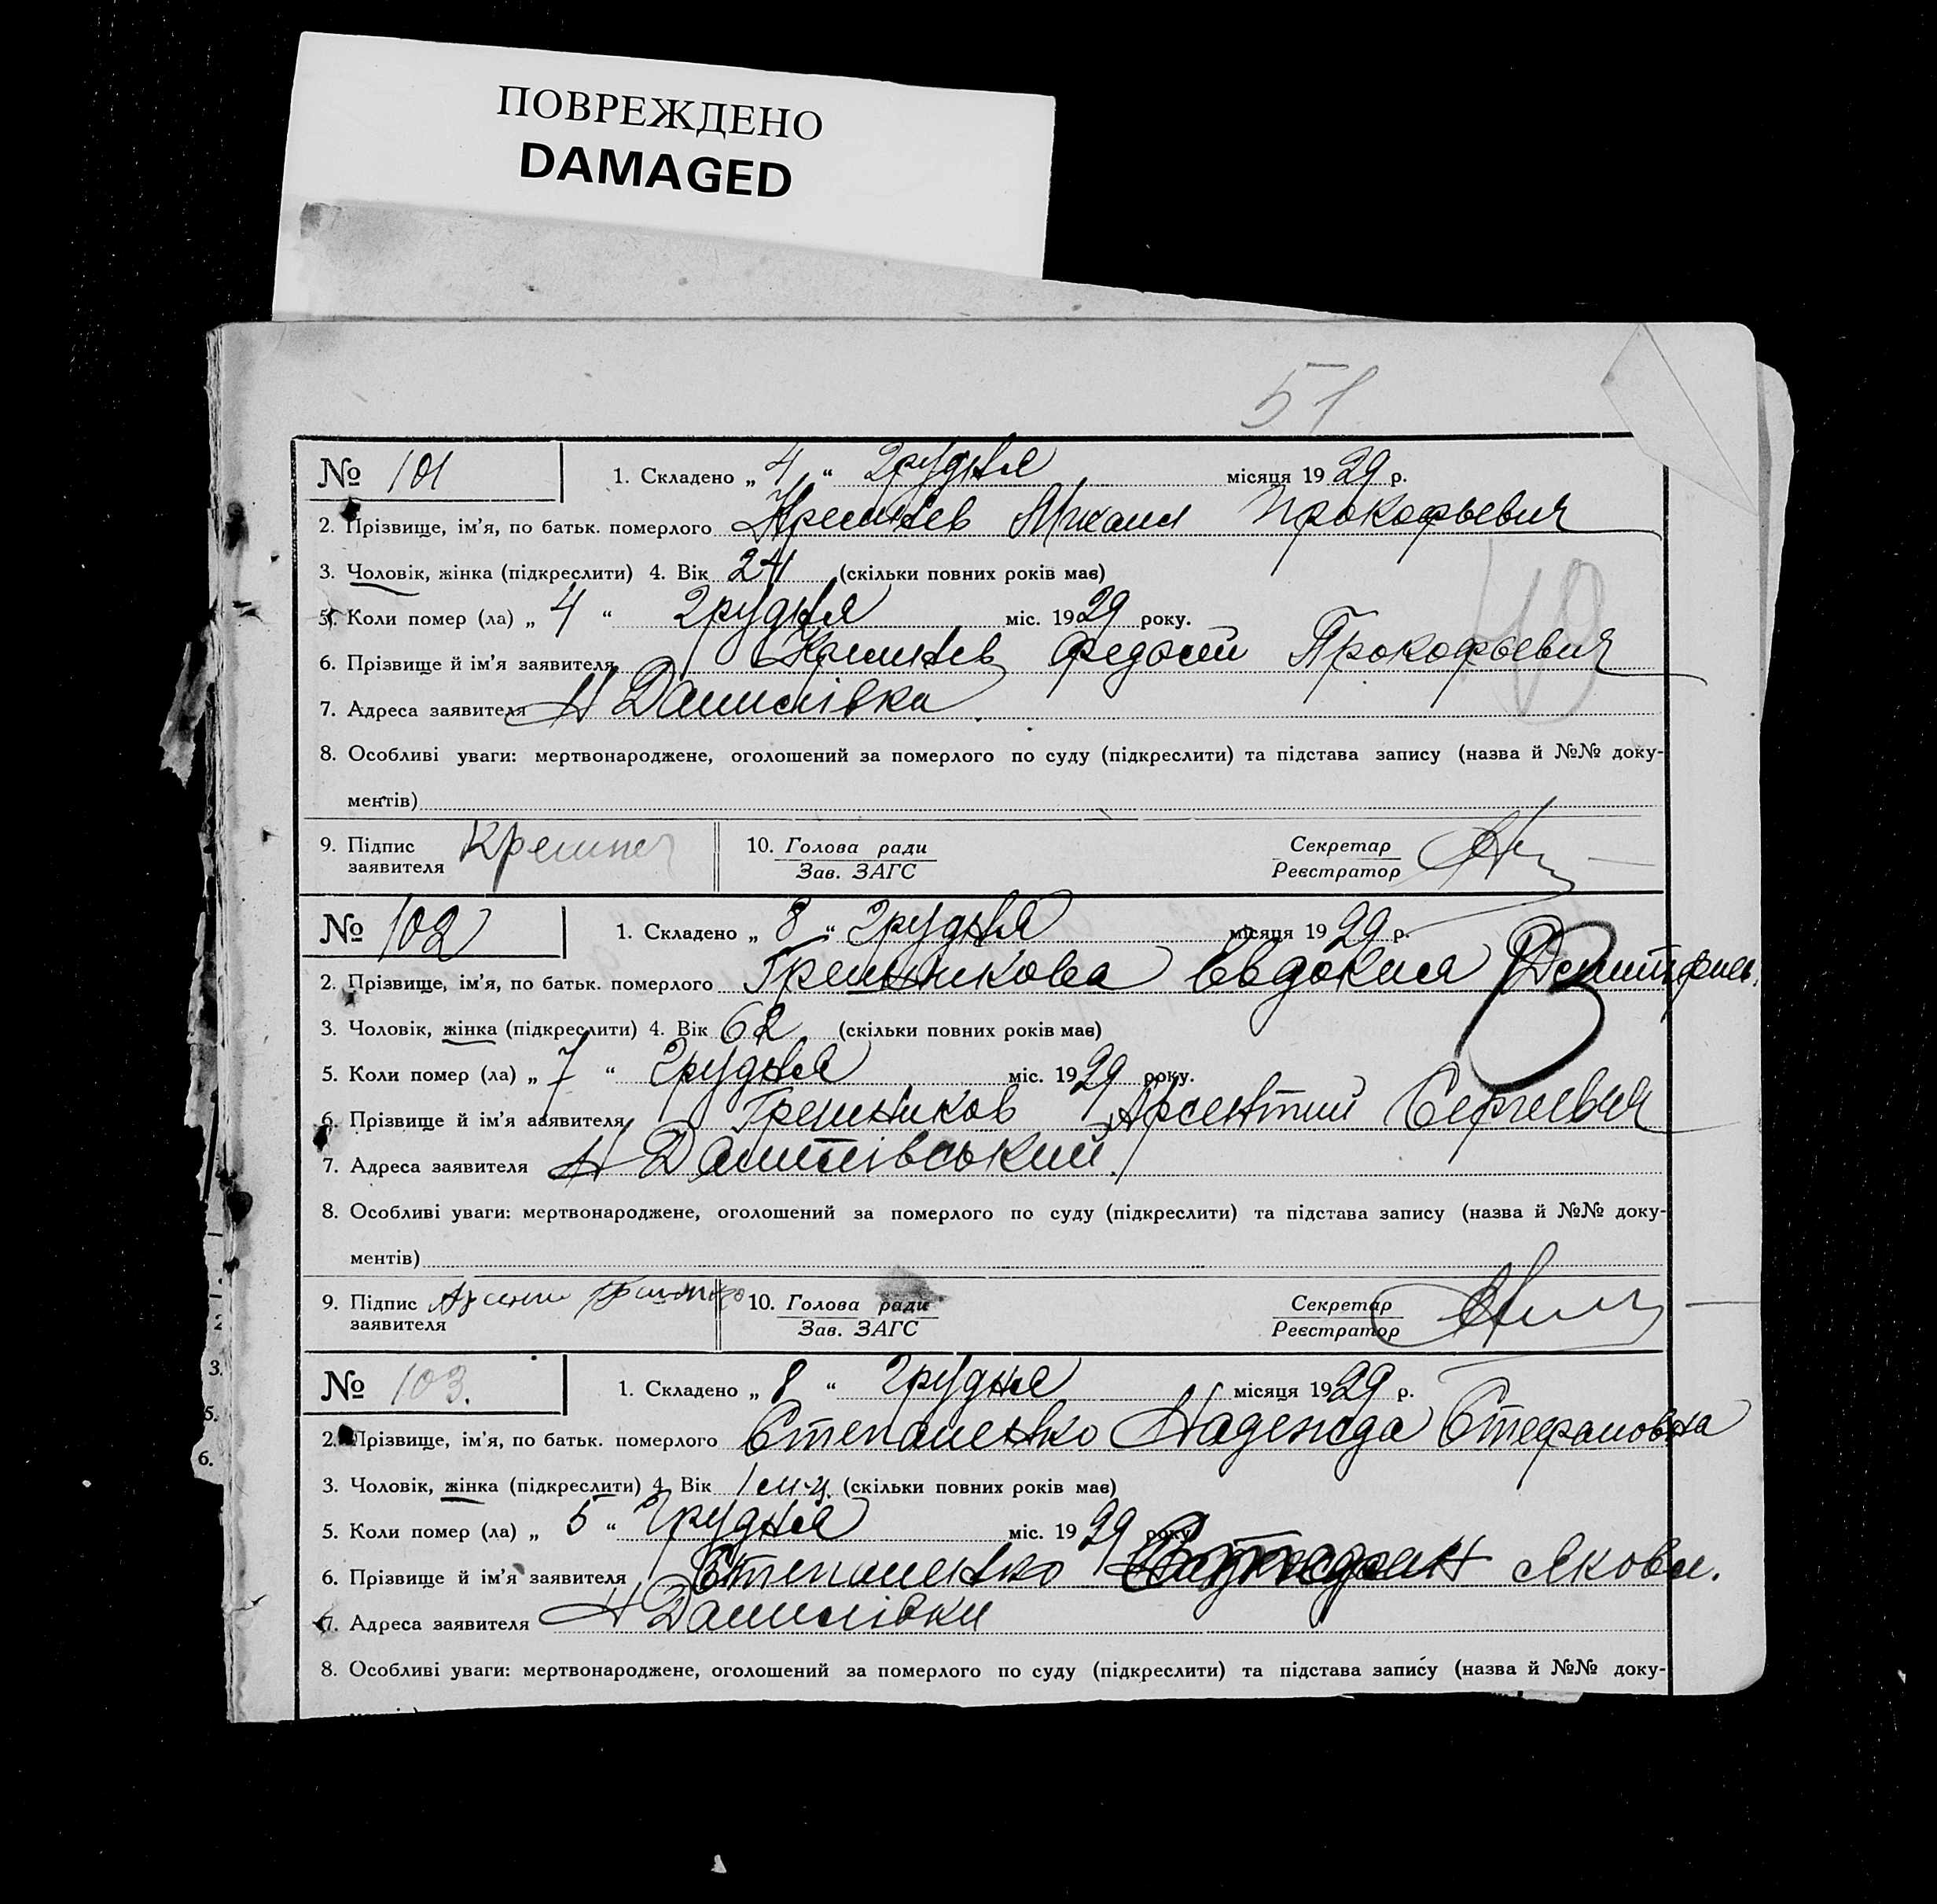 ПОВРЕЖДЕНО
DAMAGED
51
№ 101 1. Складено „ 4 “ грудня місяця 1929 р.
2. Прізвище, ім’я, по батьк. померлого Михаил Прокофьевич
3. Чоловік, жінка (підкреслити) 4. Вік 24 (скільки повних років має)
5. Коли помер (ла) „ 4 “ грудня міс. 1929 року.
6. Прізвище й ім’я заявителя Федосий Прокофьевич
7. Адреса заявителя Н Данилівка
8. Особливі уваги: мертвонароджене, оголошений за померлого по суду (підкреслити) та підстава запису (назва й №№ доку-
ментів)
9. Підпис заявителя 10. Голова ради Зав. ЗАГС Секретар Реєстратор
№ 102 1. Складено „ 8 “ грудня місяця 1929 р.
2. Прізвище, ім’я, по батьк. померлого Грешникова Евдокия
3. Чоловік, жінка (підкреслити) 4. Вік 62 (скільки повних років має)
5. Коли помер (ла) „ 7 “ грудня міс. 1929 року.
6. Прізвище й ім’я заявителя Грешников Арсентий Сергиевич
7. Адреса заявителя Н Данилівський
8. Особливі уваги: мертвонароджене, оголошений за померлого по суду (підкреслити) та підстава запису (назва й №№ доку-
ментів)
9. Підпис заявителя 10. Голова ради Зав. ЗАГС Секретар Реєстратор
№ 103. 1. Складено „ 8 “ грудня місяця 1929 р.
2. Прізвище, ім’я, по батьк. померлого Степаненко Надежда Стефановна
3. Чоловік, жінка (підкреслити) 4. Вік 1 м-ц. (скільки повних років має)
5. Коли помер (ла) „ 5 “ грудня міс. 1929 року
6. Прізвище й ім’я заявителя Степаненко Яковл.
7. Адреса заявителя Н Данилівки
8. Особливі уваги: мертвонароджене, оголошений за померлого по суду (підкреслити) та підстава запису (назва й №№ доку-